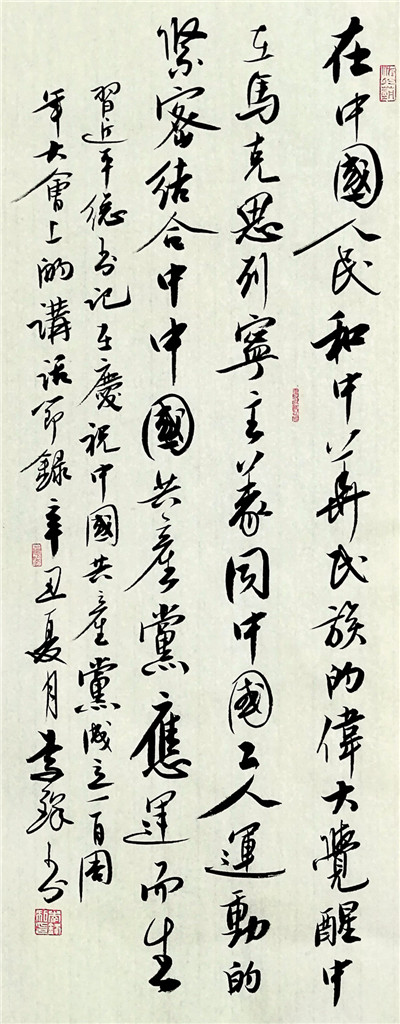 在中國人民和中華民族的偉大覺醒中
在馬克思列寧主義同中國工人運動的
緊密結合中中國共產黨應運而生
習近平總書記在慶祝中國共產黨成立一百周
年大會上的講話節錄辛丑夏月
書